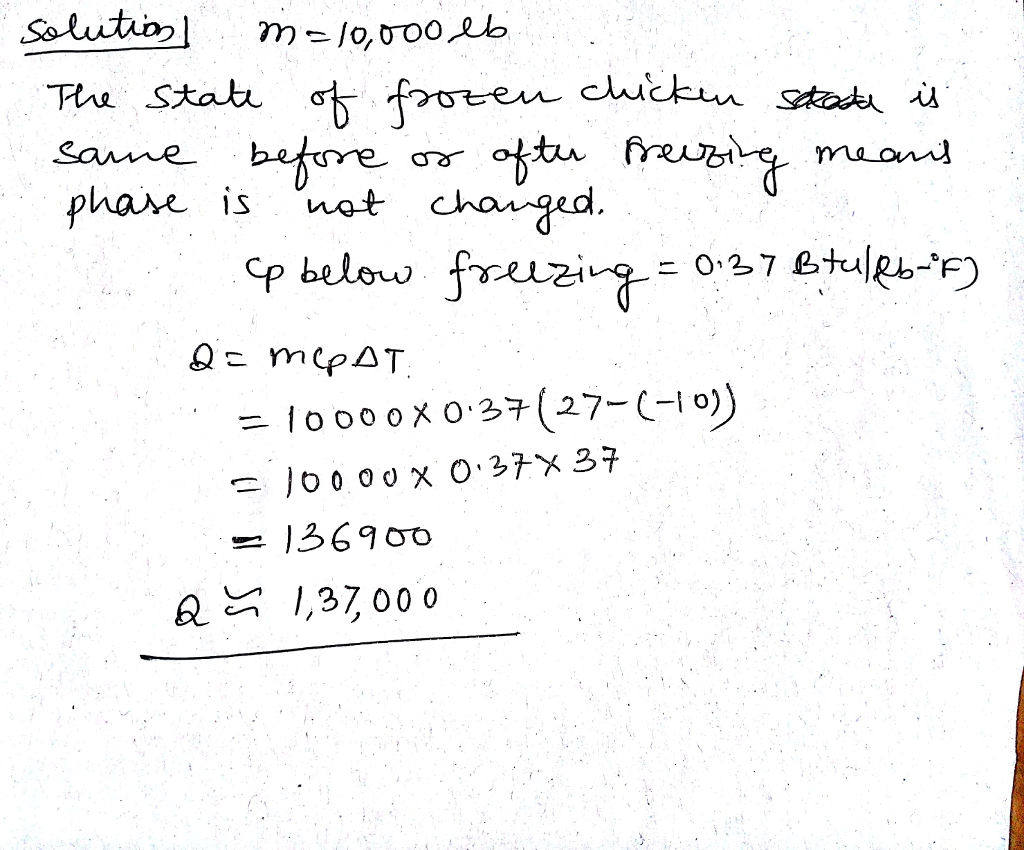 Solution| m = 10,000 lb
The State of frozen chicken is
same before or after freezing means
phase is not changed.
Cp below freezing = 0.37 Btu/lb-°F)
Q = mCpΔT.
= 10000 X 0.37 (27-(-10))
= 10000 X 0.37 X 37
= 136900
Q ≈ 1,37,000